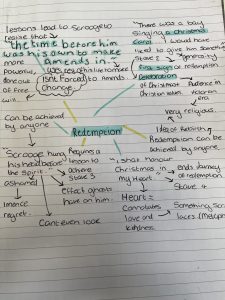 lessons lead to Scrooge to
realise that
the time before him
was his own to make
amends in.
more
Powerful
because
of Free
will
was
not
Forced to
Change.
"There was a boy
singing a christmas
Carol
I would have
liked to give him something
Stave 2
First sign of redemption
Celebration
of Christmas
Christian
Audience in
Victorian
era.
very religious.
Can be achieved
by anyone
Redemption
Idea of
Redemption can
be achieved by anyone.
"Scrooge hung
his head before
the spirit"
ashamed
intence
regret.
Can't even look
Requires a
lesson to
achieve
Stave 3
effect ghosts
have on him.
"I shall honour
Christmas in
my Heart"
ends Journey
of redemption
Stave 4
Heart =
Connotates
love and
kindness.
Something Scrooge